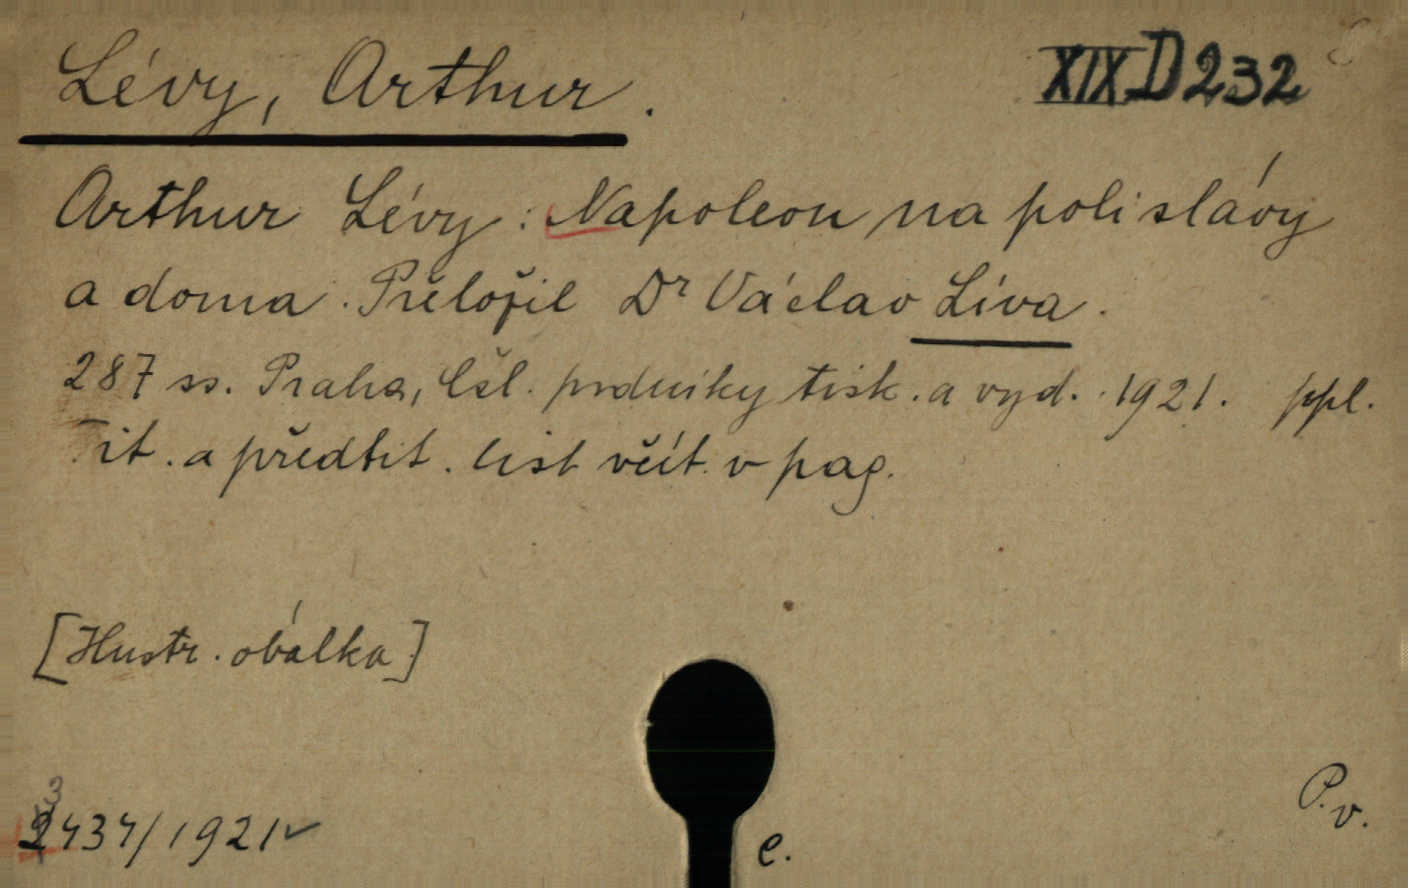 Lévy, Arthur.
XIX D 232
Arthur Lévy: Napoleon na poli slávy
a doma. Přeložil Dr Václav Líva.
287 ss. Praha, Čsl. podniky tisk. a vyd. 1921. ppl.
Tit. a předtit. list včít. v pag.
[Illustr. obálka]
3
2434/1921
e.
P. v.